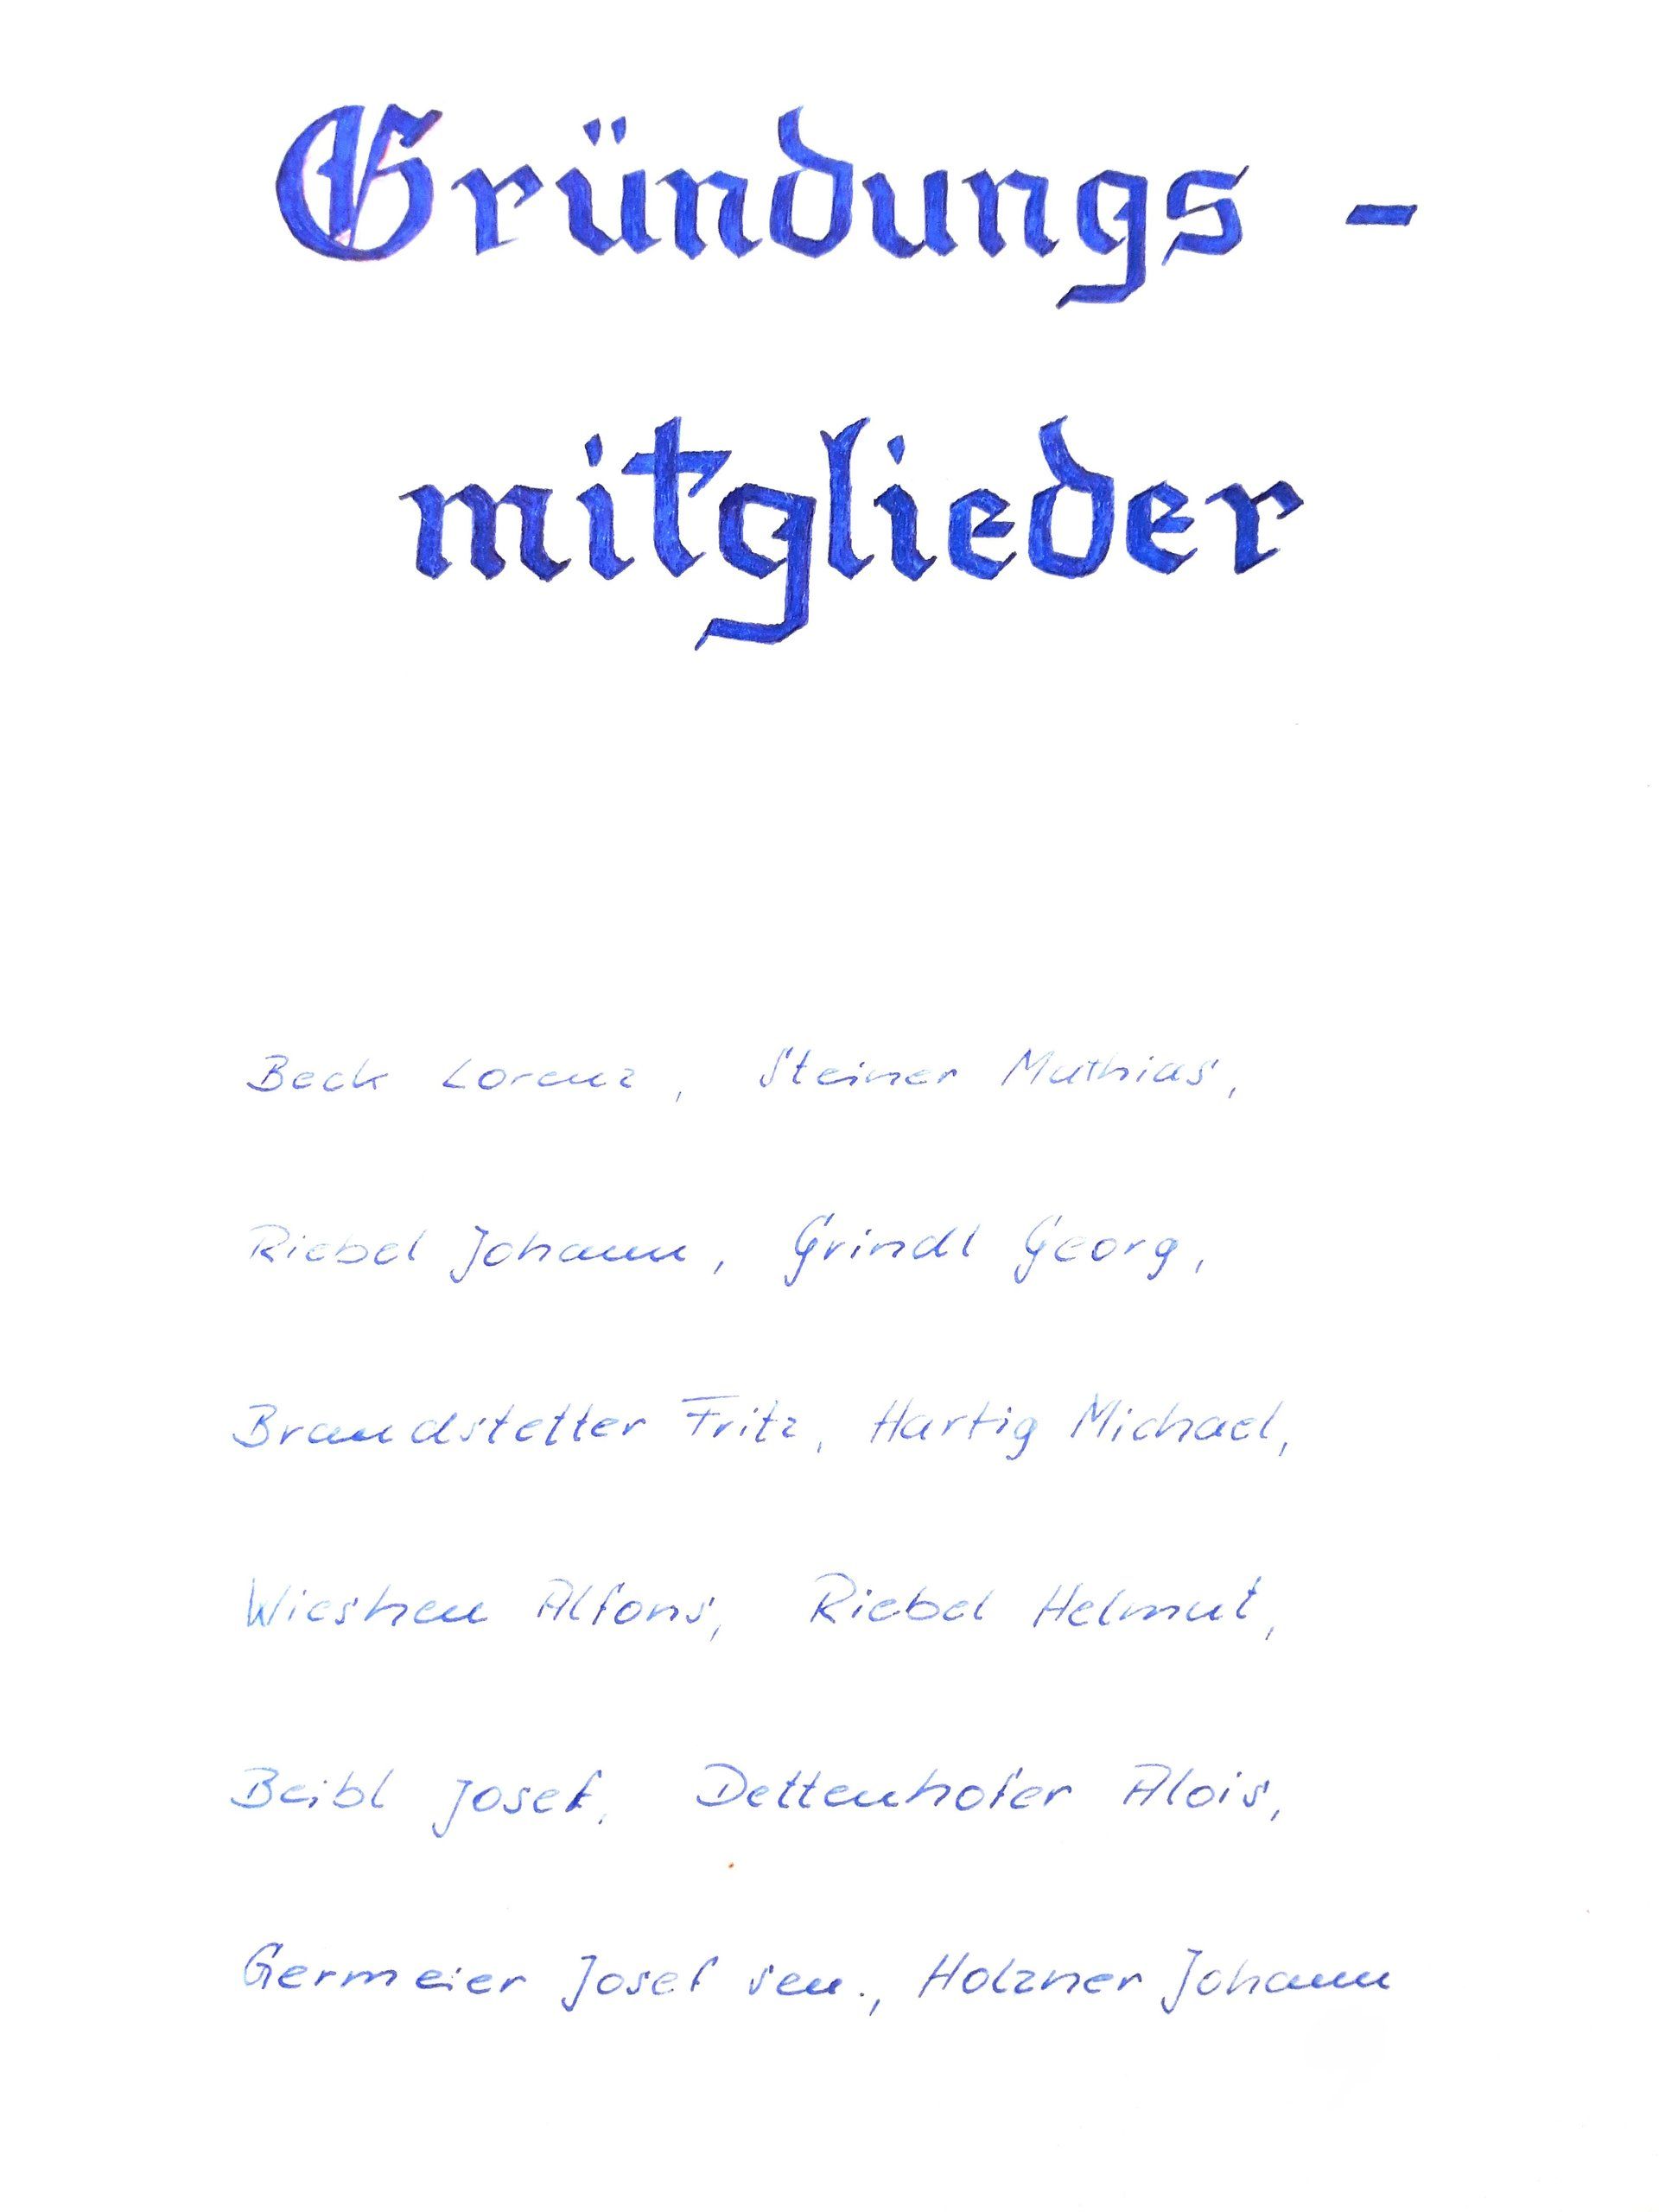 Gründungs -
mitglieder
Beck Lorenz, Steiner Mathias,
Riebel Johann, Grindl Georg,
Brandstetter Fritz, Hartig Michael,
Wiesheu Alfons, Riebel Helmut,
Beibl Josef, Dettenhofer Alois,
Germeier Josef sen., Holzner Johann